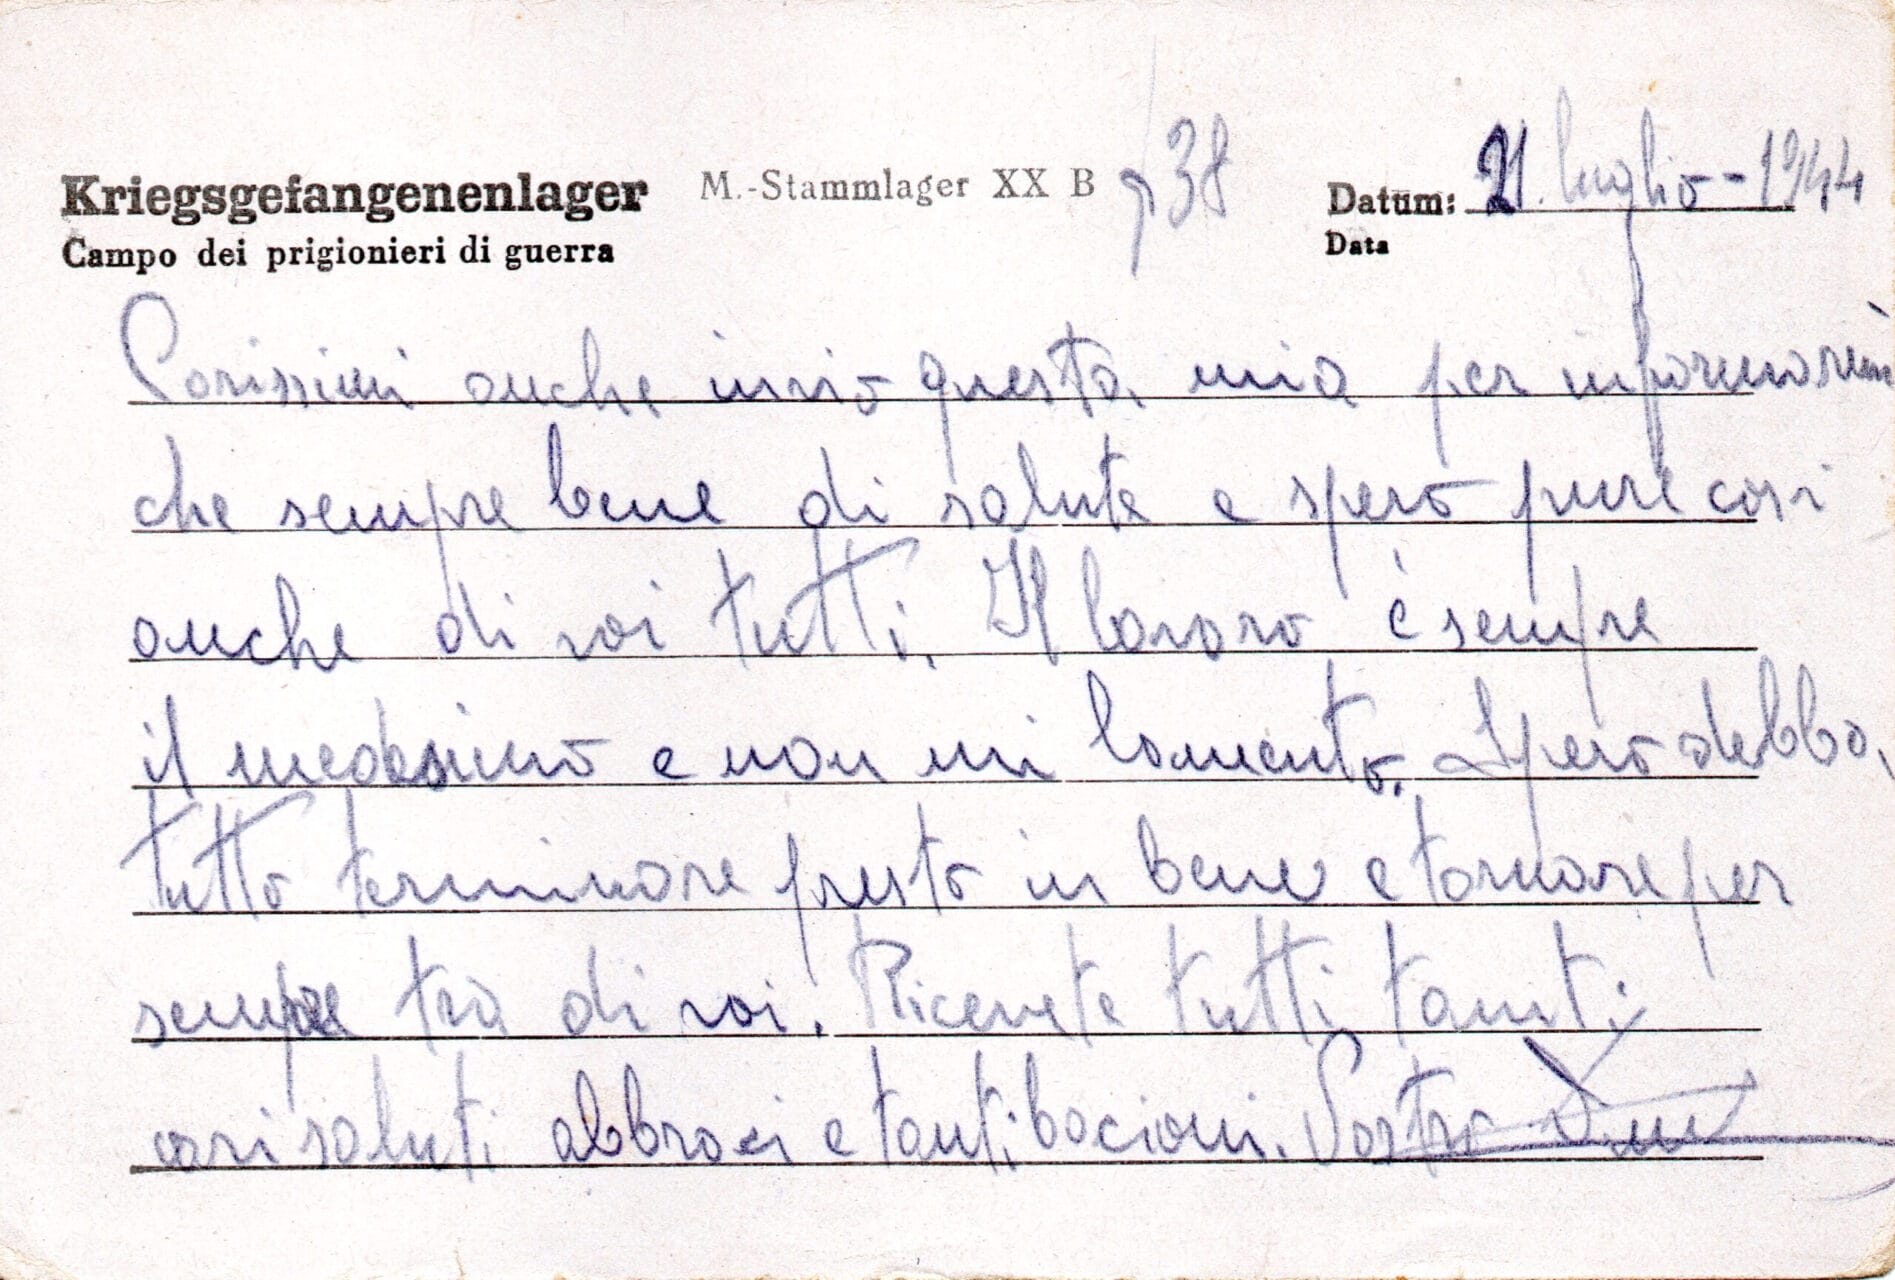 Kriegsgefangenenlager M.-Stammlager XX B 738 Datum: 21. luglio - 1944
Campo dei prigionieri di guerra Data
Carissimi anche invio questa mia per informarvi
che sempre bene di salute e spero pure così
anche di voi tutti. Il lavoro è sempre
il medesimo e non mi lamento. Spero debba,
tutto terminare presto in bene e tornare per
sempre tra di voi. Ricevete tutti tanti
cari saluti abbraci e tanti bacioni. Vostro